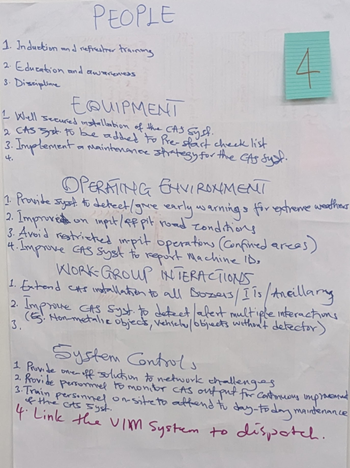 PEOPLE
4
1. Induction and refresher training
2. Education and awareness
3. Discipline
EQUIPMENT
1. Well secured installation of the CAS Syst.
2. CAS Syst to be added to Pre-start check list
3. Implement a Maintenance strategy for the CAS Syst.
4.
OPERATING ENVIRONMENT
1. Provide syst to detect/give early warnings for extreme weathers
2. Improve on inpit/expit road conditions
3. Avoid restricted inpit operations (confined areas)
4. Improve CAS Syst to report Machine IDs.
WORK-GROUP INTERACTIONS
1. Extend CAS installation to all Dozers/ITs/Ancillary
2. Improve CAS Syst to detect/alert multiple interactions
(Eg. Non-metallic objects, Vehicle/objects without detector)
3.
System Controls
1. Provide one-off solution to network challenges
2. Provide personnel to monitor CAS output for Continuous improvement
3. Train personnel on-site to attend to day-to-day maintenance
of the CAS Syst.
4. Link the VIM System to dispatch.